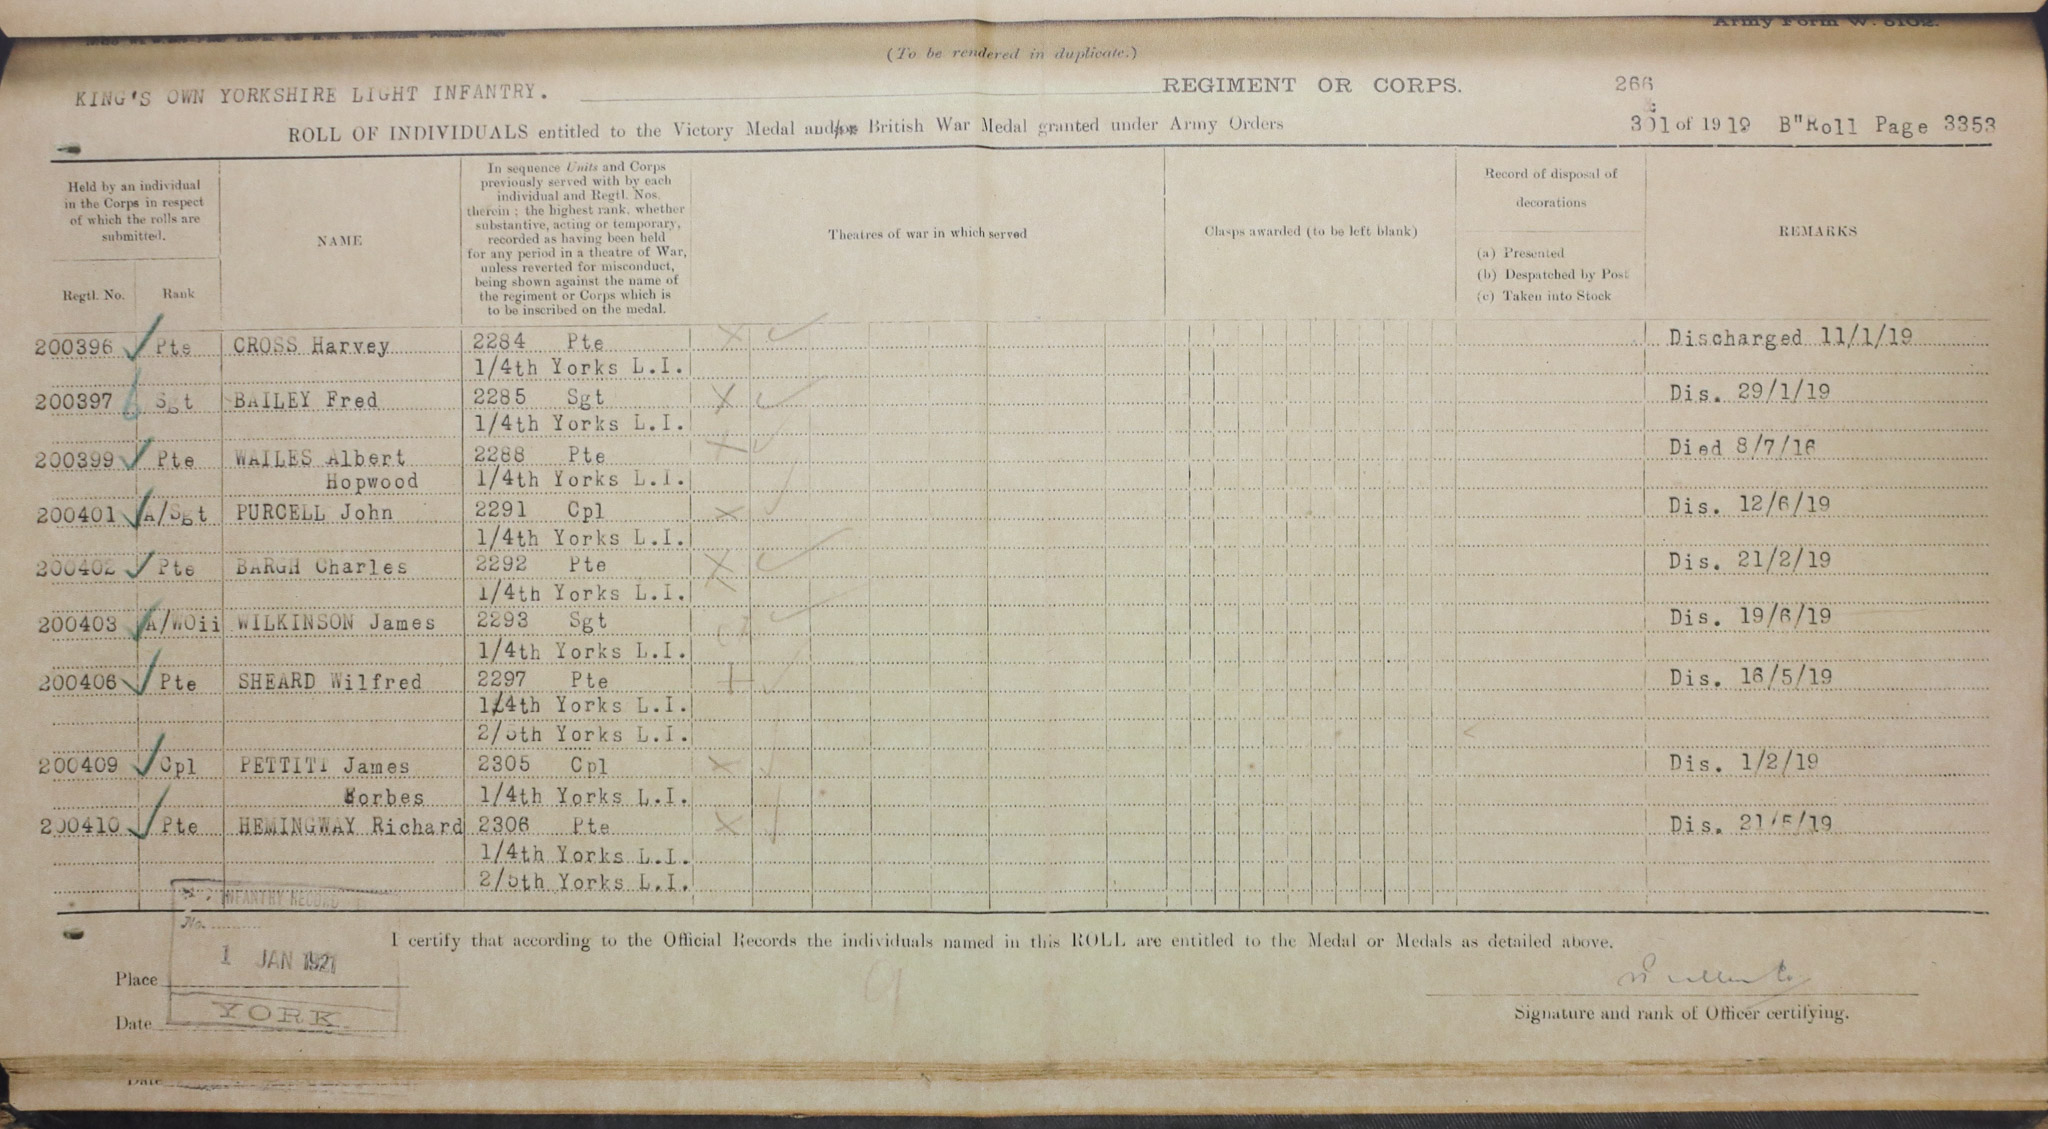 Army Form W. 5102.
(To be rendered in duplicate.)
KING'S OWN YORKSHIRE LIGHT INFANTRY. REGIMENT OR CORPS. 266
ROLL OF INDIVIDUALS entitled to the Victory Medal and/or British War Medal granted under Army Orders 301 of 1919 B" Roll Page 3353
Held by an individual
in the Corps in respect
of which the rolls are
submitted.
Regtl. No. Rank
NAME
In sequence Units and Corps
previously served with by each
individual and Regtl. Nos.
therein ; the highest rank, whether
substantive, acting or temporary,
recorded as having been held
for any period in a theatre of War,
unless reverted for misconduct,
being shown against the name of
the regiment or Corps which is
to be inscribed on the medal.
Theatres of war in which served
Clasps awarded (to be left blank)
Record of disposal of
decorations
(a) Presented
(b) Despatched by Post
(c) Taken into Stock
REMARKS
200396 Pte CROSS Harvey 2284 Pte Discharged 11/1/19
1/4th Yorks L.I.
200397 Sgt BAILEY Fred 2285 Sgt Dis. 29/1/19
1/4th Yorks L.I.
200399 Pte WAILES Albert 2288 Pte Died 8/7/16
Hopwood 1/4th Yorks L.I.
200401 A/Sgt PURCELL John 2291 Cpl Dis. 12/6/19
1/4th Yorks L.I.
200402 Pte BARGH Charles 2292 Pte Dis. 21/2/19
1/4th Yorks L.I.
200403 A/WOii WILKINSON James 2293 Sgt Dis. 19/6/19
1/4th Yorks L.I.
200406 Pte SHEARD Wilfred 2297 Pte Dis. 16/5/19
1/4th Yorks L.I.
2/5th Yorks L.I.
200409 Cpl PETTITT James 2305 Cpl Dis. 1/2/19
Forbes 1/4th Yorks L.I.
200410 Pte HEMINGWAY Richard 2306 Pte Dis. 21/5/19
1/4th Yorks L.I.
2/5th Yorks L.I.
INFANTRY RECORD
No.
1 JAN 1921
YORK
I certify that according to the Official Records the individuals named in this ROLL are entitled to the Medal or Medals as detailed above.
Place
Date
Signature and rank of Officer certifying.
Date